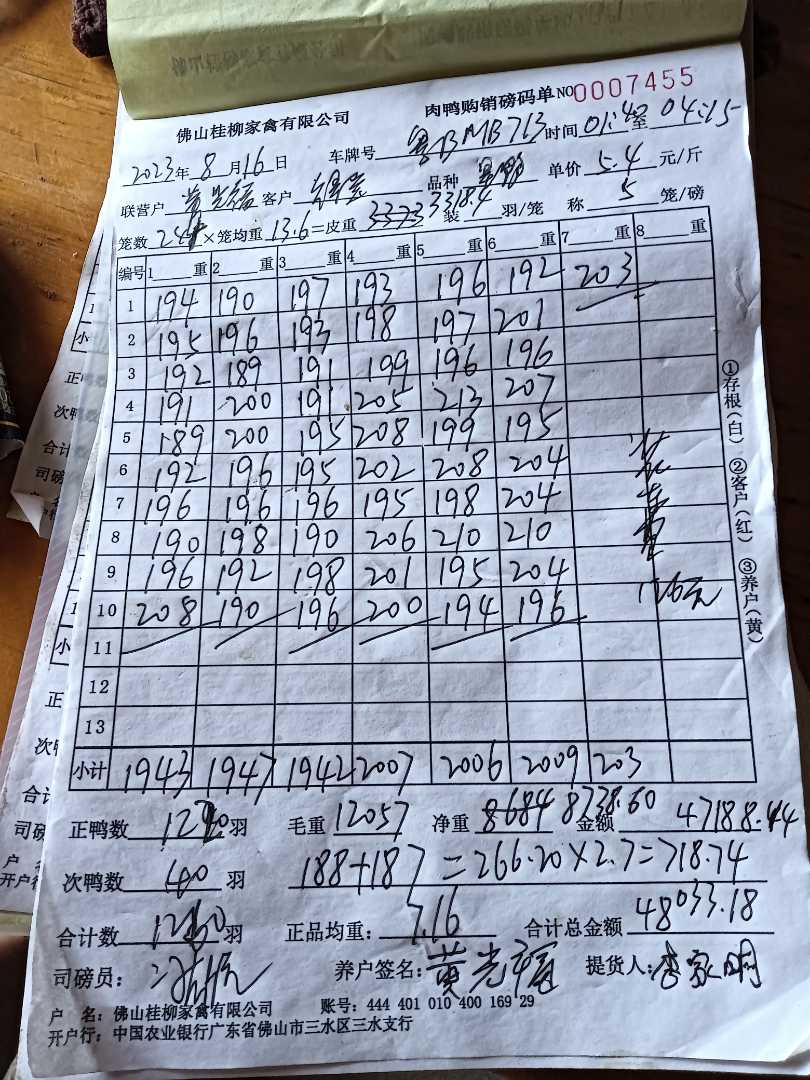 佛山桂柳家禽有限公司 肉鸭购销磅码单 NO 0007455
2023年 8 月 16 日 车牌号 粤BMB713 时间 01:40 至 04:15
联营户 黄光福 客户 品种 单价 5.4 元/斤
笼数 244 ×笼均重 13.6 =皮重 3373 3318.4 装 羽/笼 称 5 笼/磅
编号 1 重 2 重 3 重 4 重 5 重 6 重 7 重 8 重
1 194 190 197 193 196 192 203
2 195 196 193 198 197 201
3 192 189 191 199 196 196
4 191 200 191 205 213 207
5 189 200 195 208 199 195
6 192 196 195 202 208 204
7 196 196 196 195 198 204
8 190 198 190 206 210 210
9 196 192 198 201 195 204
10 208 190 196 200 194 196
11
12
13
小计 1943 1947 1942 2007 2006 2009 203
126元
①存根(白) ②客户(红) ③养户(黄)
正鸭数 1220 羽 毛重 12057 净重 8684 8738.60 金额 47188.44
次鸭数 40 羽 188+187=266.20×2.7=718.74
合计数 1260 羽 正品均重: 7.16 合计总金额 48033.18
司磅员: 养户签名: 黄光福 提货人: 李家明
户 名: 佛山桂柳家禽有限公司 账号: 444 401 010 400 169 29
开户行: 中国农业银行广东省佛山市三水区三水支行